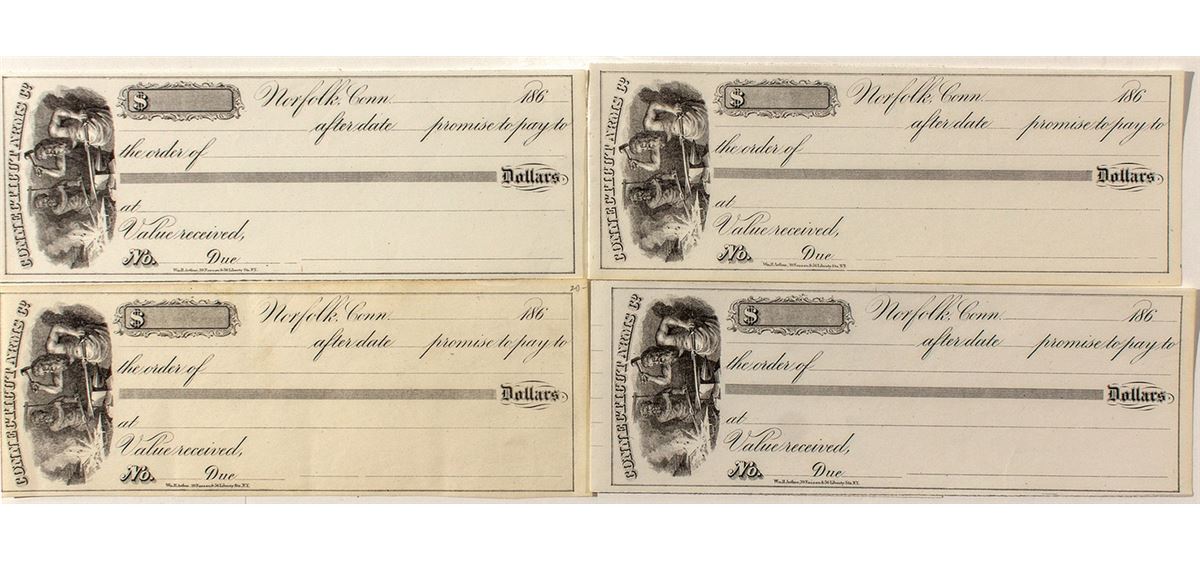 CONNECTICUT ARMS Co.
$ Norfolk, Conn. 186
after date promise to pay to
the order of
Dollars
at
Value received,
No. Due
Wm. H. Arthur, 39 Nassau & 56 Liberty Sts. N.Y.
CONNECTICUT ARMS Co.
$ Norfolk, Conn. 186
after date promise to pay to
the order of
Dollars
at
Value received,
No. Due
Wm. H. Arthur, 39 Nassau & 56 Liberty Sts. N.Y.
CONNECTICUT ARMS Co.
$ Norfolk, Conn. 186
after date promise to pay to
the order of
Dollars
at
Value received,
No. Due
Wm. H. Arthur, 39 Nassau & 56 Liberty Sts. N.Y.
CONNECTICUT ARMS Co.
$ Norfolk, Conn. 186
after date promise to pay to
the order of
Dollars
at
Value received,
No. Due
Wm. H. Arthur, 39 Nassau & 56 Liberty Sts. N.Y.